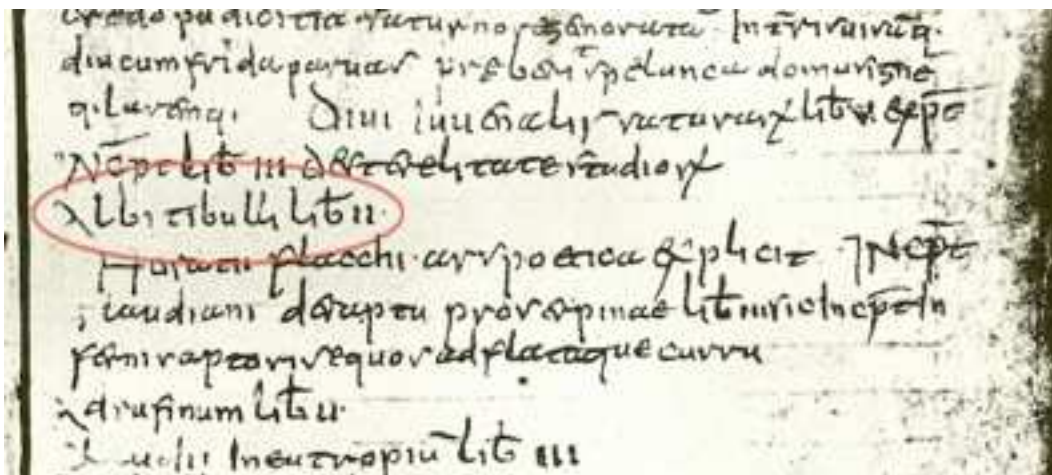 credo pudicitia saturno rege morata In terris uisaq.
diu cum frida paruas preberet spelunca domus igne
q. laremq. Diui iuuenalis saturarx lib v. expc
INcpt lib III de crudelitate studiorx
Albi tibulli lib II.
Horatii flacchi ars poetica explicit INcpt
claudiani de raptu proserpinae lib Incpt In
ferni raptoris equos adflataque curru
Ad rufinum lib II.
In eutropiu lib III